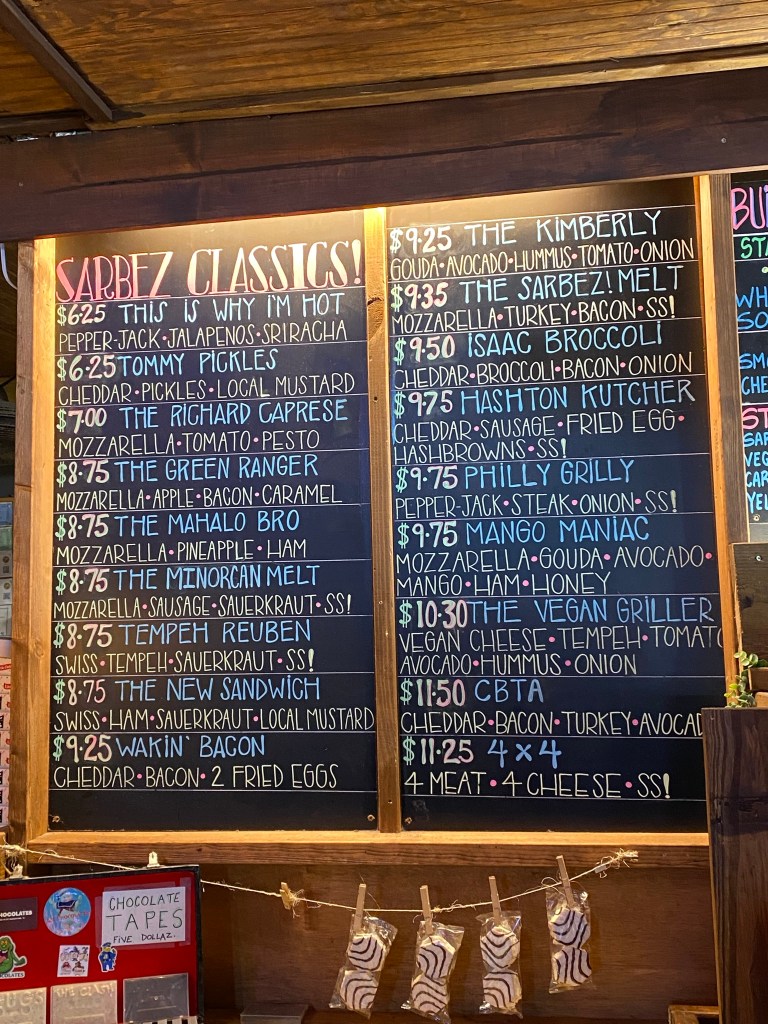 SARBEZ CLASSICS!
$6.25 THIS IS WHY I'M HOT
PEPPER-JACK•JALAPENOS•SRIRACHA
$6.25 TOMMY PICKLES
CHEDDAR•PICKLES•LOCAL MUSTARD
$7.00 THE RICHARD CAPRESE
MOZZARELLA•TOMATO•PESTO
$8.75 THE GREEN RANGER
MOZZARELLA•APPLE•BACON•CARAMEL
$8.75 THE MAHALO BRO
MOZZARELLA•PINEAPPLE•HAM
$8.75 THE MINORCAN MELT
MOZZARELLA•SAUSAGE•SAUERKRAUT•SS!
$8.75 TEMPEH REUBEN
SWISS•TEMPEH•SAUERKRAUT•SS!
$8.75 THE NEW SANDWICH
SWISS•HAM•SAUERKRAUT•LOCAL MUSTARD
$9.25 WAKIN' BACON
CHEDDAR•BACON•2 FRIED EGGS
$9.25 THE KIMBERLY
GOUDA•AVOCADO•HUMMUS•TOMATO•ONION
$9.35 THE SARBEZ! MELT
MOZZARELLA•TURKEY•BACON•SS!
$9.50 ISAAC BROCCOLI
CHEDDAR•BROCCOLI•BACON•ONION
$9.75 HASHTON KUTCHER
CHEDDAR•SAUSAGE•FRIED EGG•
HASHBROWNS•SS!
$9.75 PHILLY GRILLY
PEPPER-JACK•STEAK•ONION•SS!
$9.75 MANGO MANIAC
MOZZARELLA•GOUDA•AVOCADO•
MANGO•HAM•HONEY
$10.30 THE VEGAN GRILLER
VEGAN CHEESE•TEMPEH•TOMATO
AVOCADO•HUMMUS•ONION
$11.50 CBTA
CHEDDAR•BACON•TURKEY•AVOCAD
$11.25 4x4
4 MEAT•4 CHEESE•SS!
CHOCOLATE
TAPES
FIVE DOLLAZ.